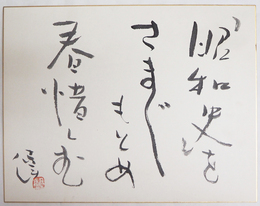 昭和史を
さまざま
もとめ
春惜しむ